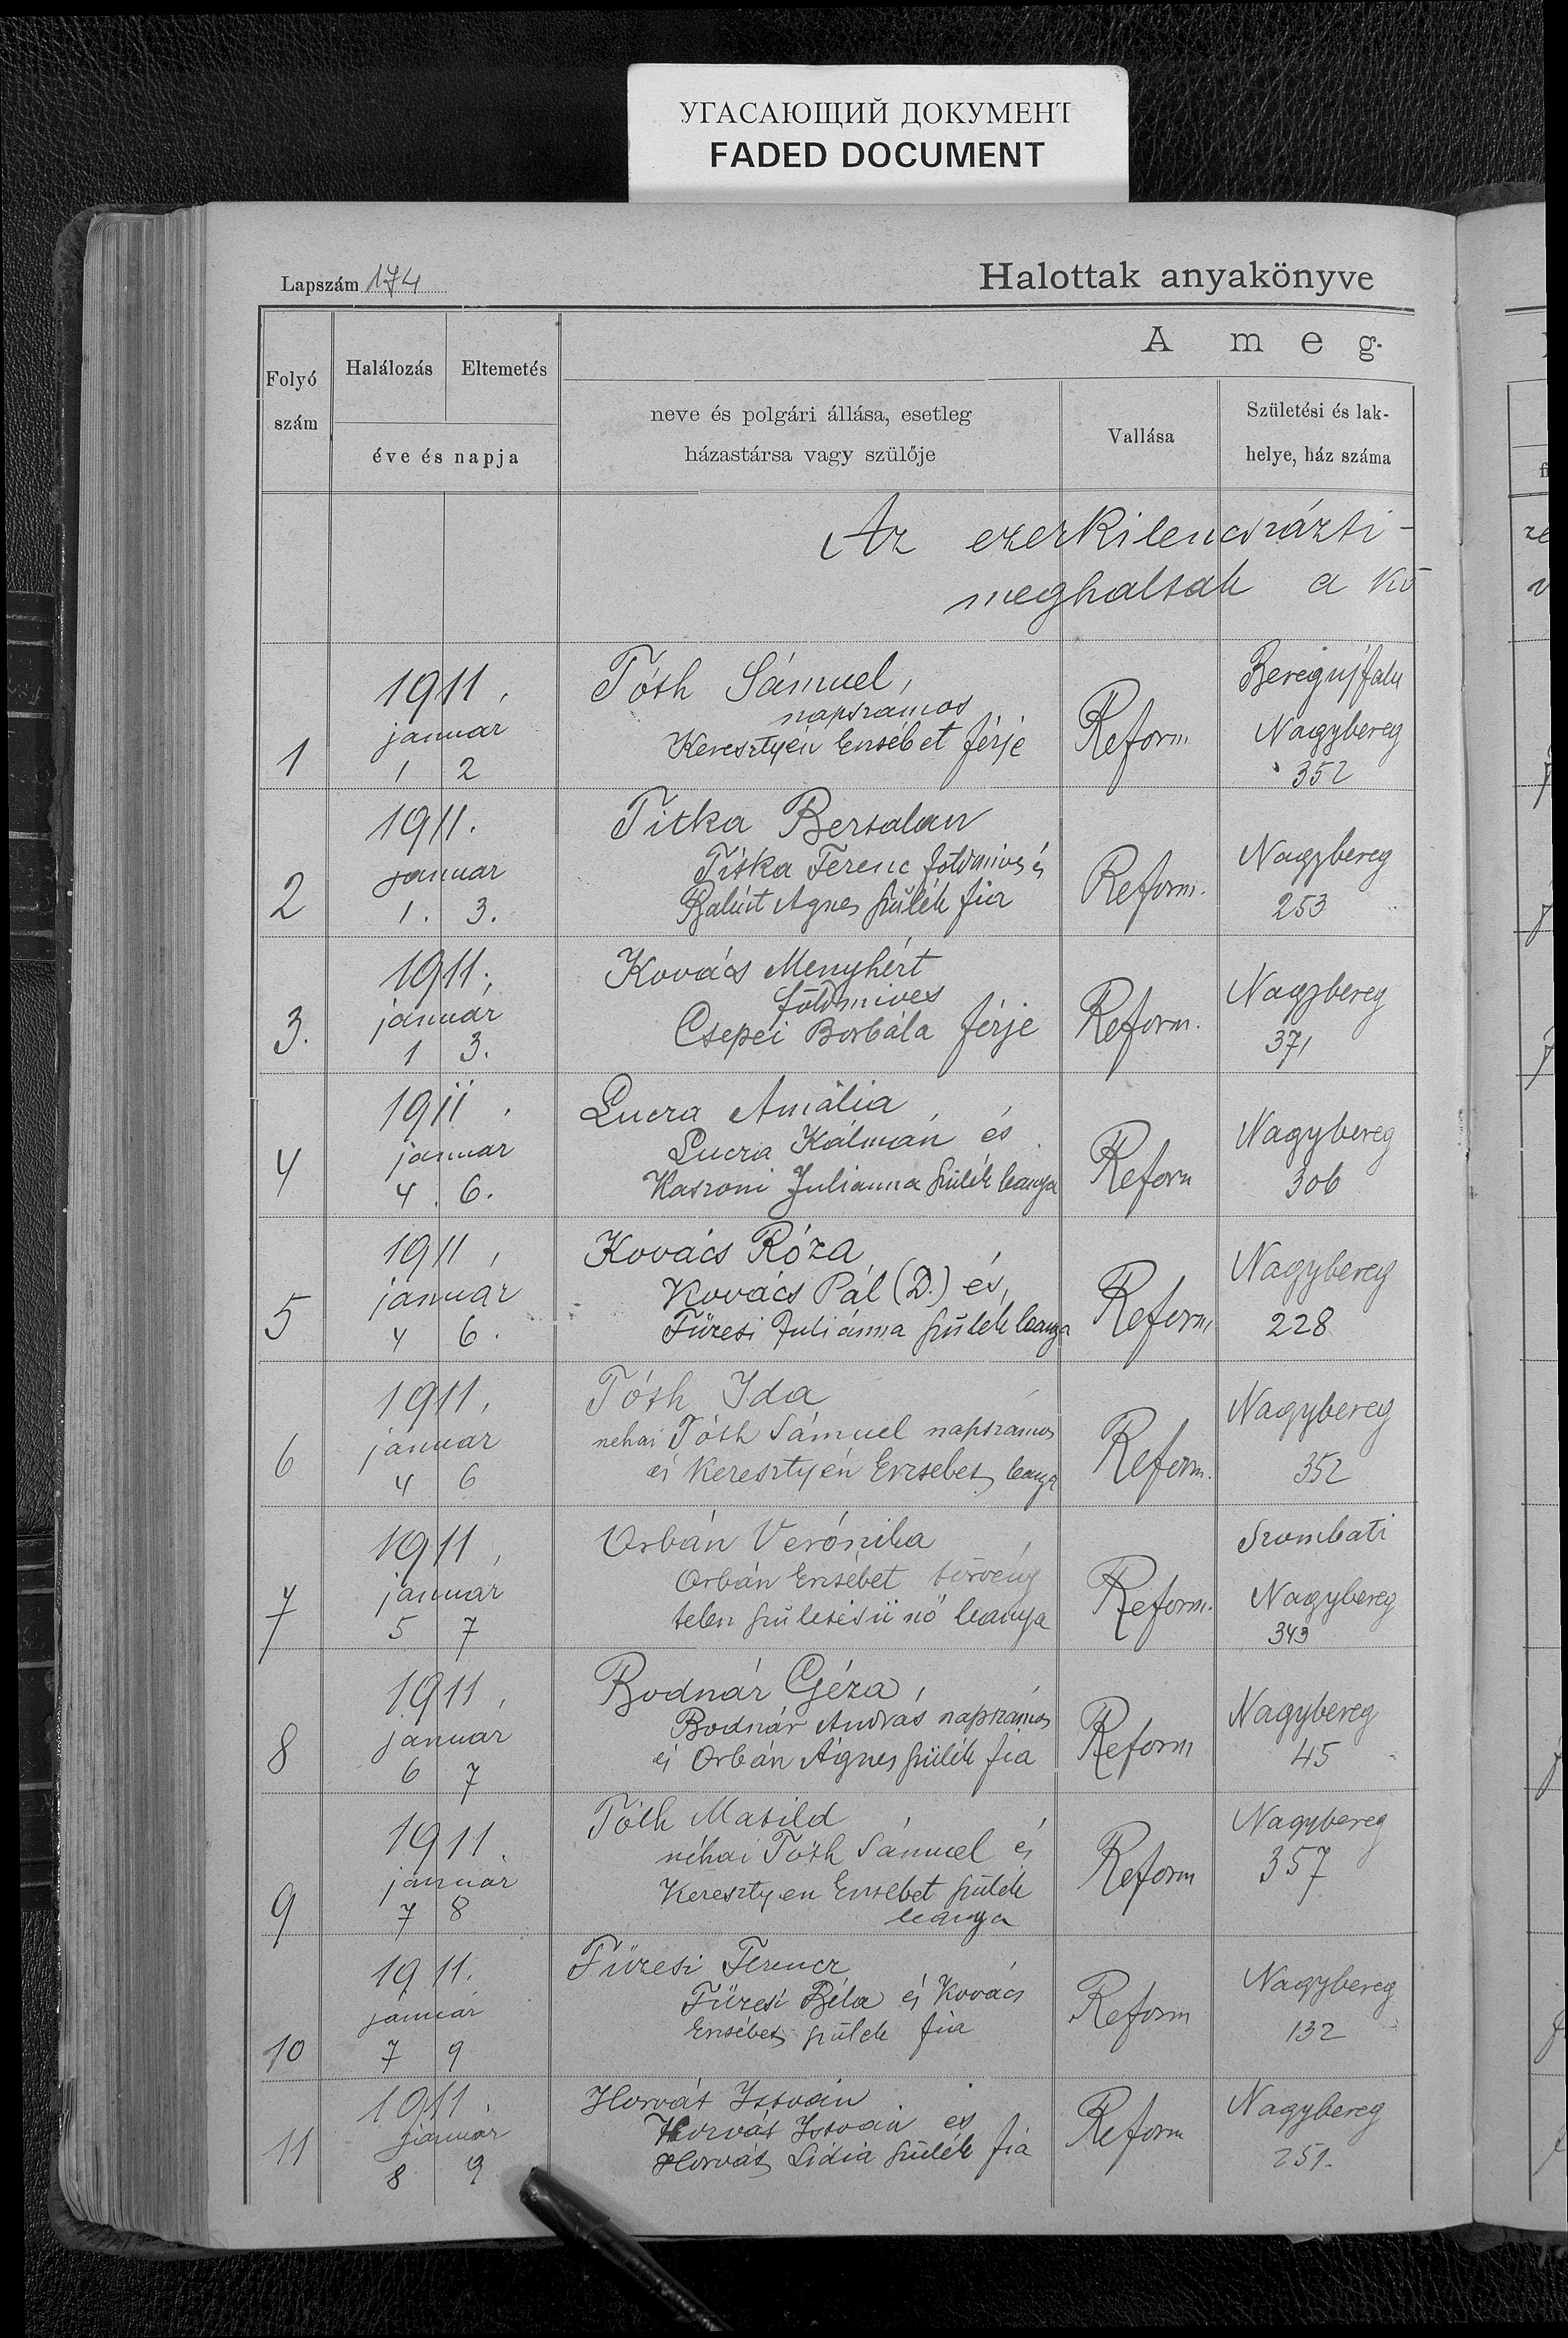 УГАСАЮЩИЙ ДОКУМЕНТ
FADED DOCUMENT
Lapszám 174
Halottak anyakönyve
A meg-
Folyó szám
Halálozás
Eltemetés
éve és napja
neve és polgári állása, esetleg
házastársa vagy szülője
Vallása
Születési és lak-
helye, ház száma
Az ezerkilencszázti-
meghaltak a kö
1
1911.
január
1 2
Tóth Sámuel,
napszamos
Keresztyén Erzsébet férje
Reform
Beregujfalu
Nagybereg
352
2
1911.
januar
1. 3.
Titka Bertalan
Titka Ferenc földmives és
Balint Agnes szülék fia
Reform.
Nagybereg
253
3.
1911.
január
1 3.
Kovács Menyhért
földmives
Csepei Borbála férje
Reform.
Nagybereg
371
4
1911.
januar
4. 6.
Lucza Amália
Lucza Kálmán és
Kaszoni Julianna szülék leanya
Reform
Nagybereg
306
5
1911,
január
4 6.
Kovács Róza
Kovács Pál (D.) és
Füzesi Juliánna szülék leanya
Reform
Nagybereg
228
6
1911.
január
4 6
Tóth Ida
nehai Tóth Sámuel napszámos
és Keresztyén Erzsebet leanya
Reform.
Nagybereg
352
7
1911,
januar
5 7
Orbán Verónika
Orbán Erzsébet törvény
telen születésü nő leanya
Reform.
Szombati
Nagybereg
343
8
1911,
január
6 7
Bodnár Géza,
Bodnár András napszámos
és Orbán Ágnes szülék fia
Reform
Nagybereg
45
9
1911.
január
7 8
Tóth Matild
néhai Tóth Sámuel és
Keresztyen Erzsebet szülék
leanya
Reform
Nagybereg
357
10
1911.
január
7 9
Füzesi Ferencz
Füzesi Béla és Kovács
Erzsébet szülék fia
Reform
Nagybereg
132
11
1911.
január
8 9
Horvát István
Horvát István és
Horvát Lidia szülék fia
Reform
Nagybereg
251.